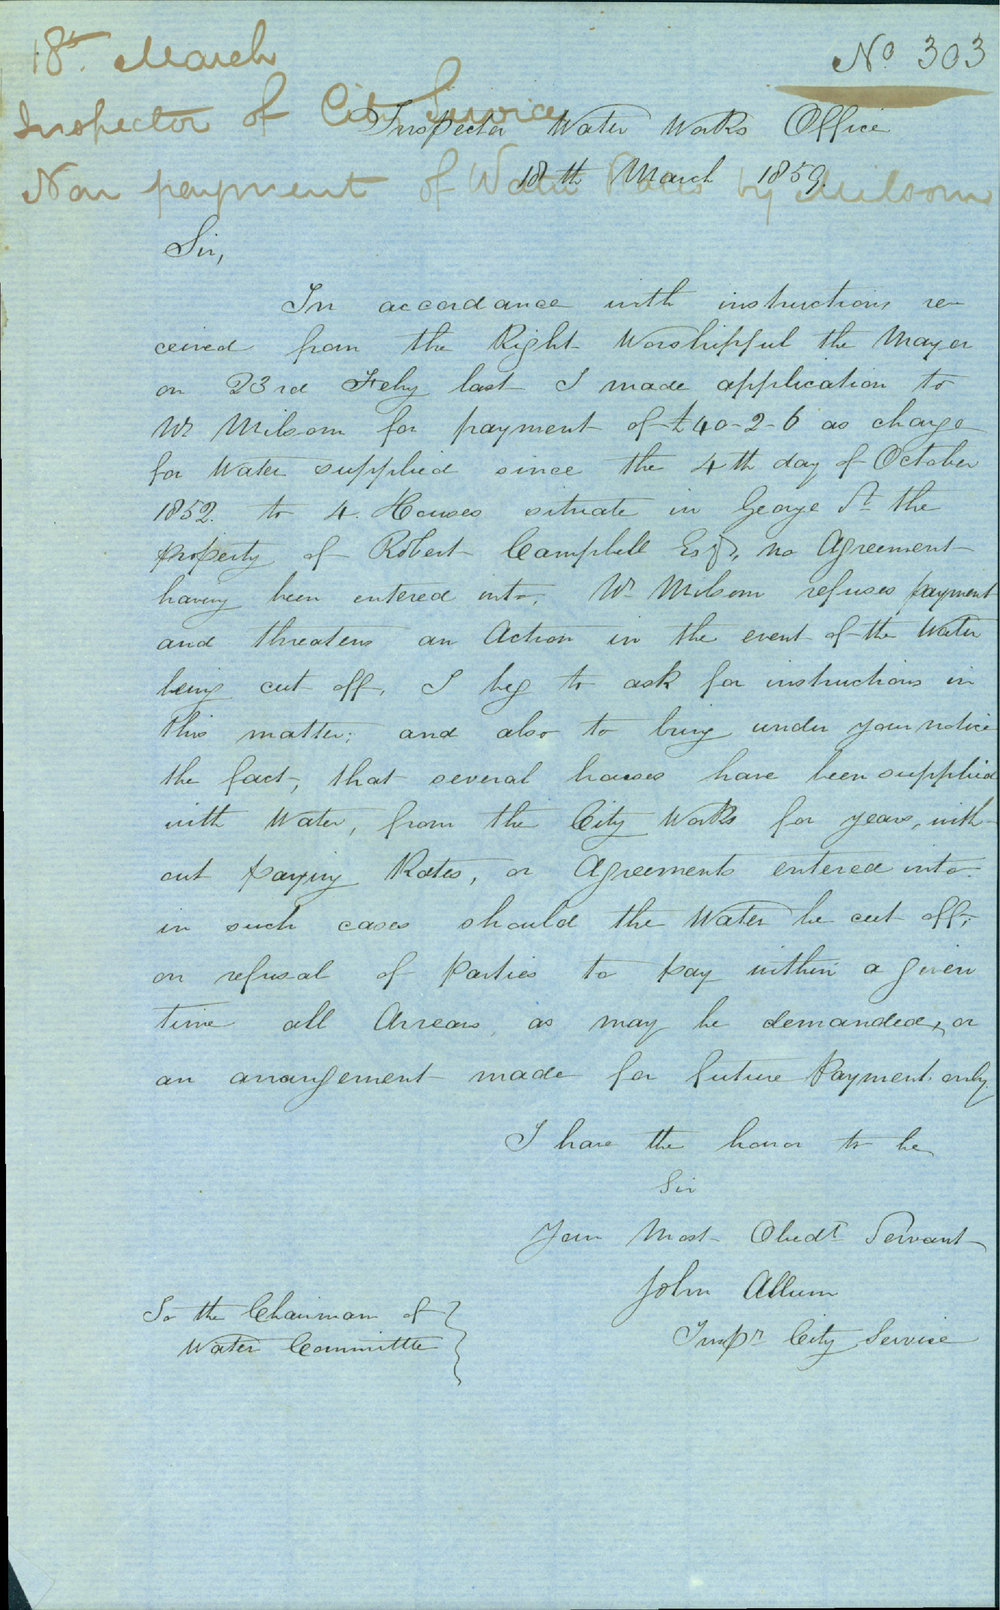 18th. March
No 303
Inspector of City Service
Non payment of Water Rates by Milsom
Inspector Water Works Office
18th March 1859.
Sir,
In accordance with instructions re-
ceived from the Right Worshipful the Mayor
on 23rd Feby last I made application to
Mr Milsom for payment of £40-2-6 as charge
for Water supplied since the 4th day of October
1852. to 4. Houses situate in George St the
property of Robert Campbell Esqr, no Agreement
having been entered into; Mr Milsom refuses payment
and threatens an Action in the event of the Water
being cut off, I beg to ask for instructions in
this matter; and also to bring under your notice
the fact, that several houses have been supplied
with Water, from the City Works for years, with-
out paying Rates, or Agreements entered into
in such cases should the Water be cut off;
on refusal of parties to pay within a given
time all Arrears, as may be demanded, or
an arrangement made for future Payment only.
I have the honor to be
Sir
Your Most Obedt Servant
John Allum
Inspr City Service
To the Chairman of
Water Committee